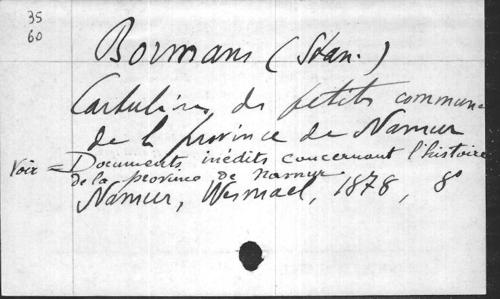 35
60
Bormans (Stan.)
Cartulaires de petites communes
de la province de Namur
Voir = Documents inédits concernant l'histoire
de la province de Namur
Namur, Wesmael, 1878, 8°